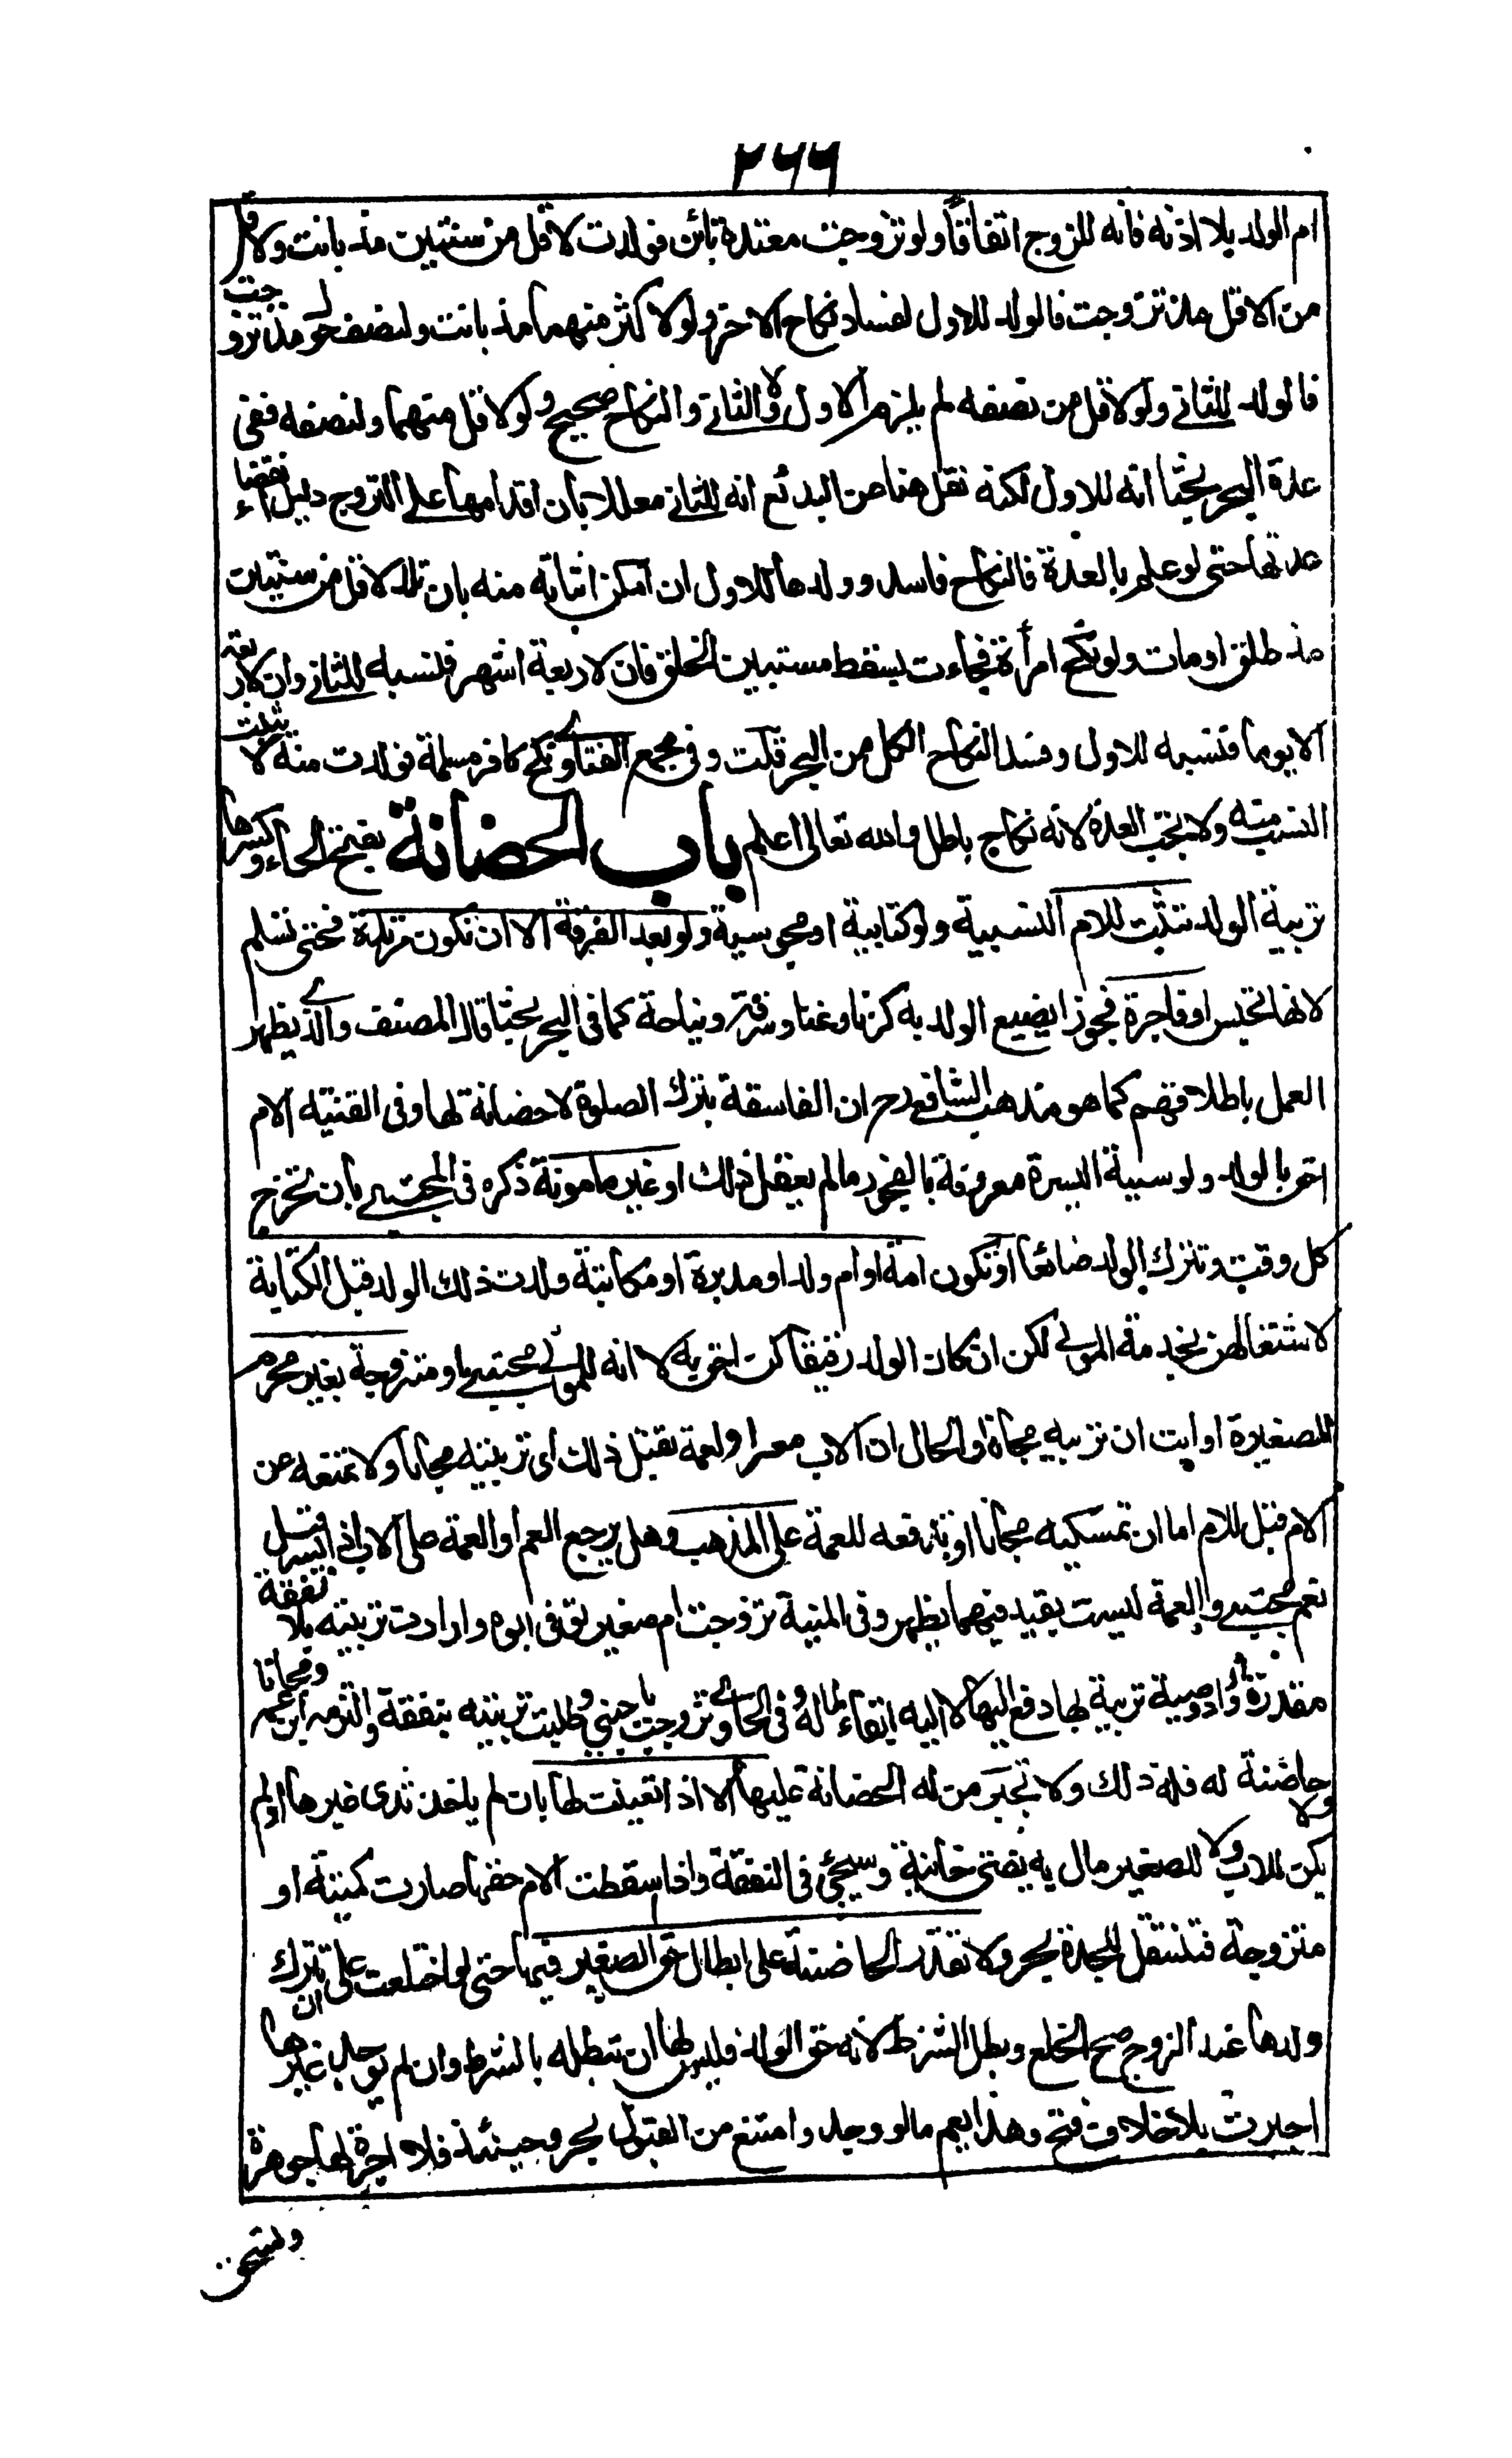 ٢٦٦
ام الولد بلا اذنه فانه للزوج اتفاقا ولو تزوجت معتدة بائن فولدت لاقل من سنتين مذ بانت ولاقل
من الاقل مذ تزوجت فالولد للاول لفساد نكاح الاخر ولو لاكثر منهما مذ بانت ولنصف حول مذ تزوجت
فالولد للثاني ولو لاقل من نصفه لم يلزم الاول ولا الثاني والنكاح صحيح ولو لاقل منهما ولنصفه ففي
عدة البحر بحثا انه للاول لكنه نقل هنا من البدائع انه للثاني معللا بان اقدامها على التزوج دليل انقضاء
عدتها حتى لو علم بالعدة فالنكاح فاسد وولدها للاول ان امكن اثباته منه بان تلد لاقل من سنتين
مذ طلق او مات ولو نكح امرأة فجاءت بسقط مستبين الخلق فان لاربعة اشهر فنسبه للثاني وان لاربعة
الا يوما فنسبه للاول وفسد النكاح الكل من البحر قلت وفي مجمع الفتاوي نكح كافر مسلمة فولدت منه لا يثبت
النسب منه ولا تجب العدة لانه نكاح باطل والله تعالى اعلم باب الحضانة بفتح الحاء وكسرها
تربية الولد تثبت للام النسبية ولو كتابية او مجوسية ولو بعد الفرقة الا ان تكون مرتدة فحتى تسلم
لانها تحبس او فاجرة فجورا يضيع الولد به كزنا وغنا وسرقة ونياحة كما في البحر بحثا قال المصنف والذي يظهر
العمل باطلاقهم كما هو مذهب الشافعي رح ان الفاسقة بترك الصلوة لا حضانة لها وفي القنية الام
احق بالولد ولو سيئة السيرة معروفة بالفجور ما لم يعقل ذلك او غير مامونة ذكره في المجتبى بان تخرج
كل وقت وتترك الولد ضائعا او تكون امة او ام ولد او مدبرة او مكاتبة ولدت ذلك الولد قبل الكتابة
لاشتغالهن بخدمة المولى لكن ان كان الولد رقيقا كن احق به لا انه للمولى مجتبى او متزوجة بغير محرم
للصغيرة او ابت ان تربيه مجانا والحال ان الاب معسر والعمة تقبل ذلك اى تربيته مجانا ولا تمنعه عن
الام قيل للام اما ان تمسكيه مجانا او تدفعه للعمة على المذهب وهل يرجع العم او العمة على الاب اذا ايسر قيل
نعم مجتبى والعمة ليست بقيد فيما يظهر وفي المنية تزوجت ام صغير توفى ابوه وارادت تربيته بلا نفقة
مقدرة واراد وصيه تربيته بها دفع اليها لا اليه ابقاء لماله وفي الحاوي تزوجت باجنبي وطلبت تربيته بنفقة والتزمه ابن عمه مجانا
ولا حاضنة له فله ذلك ولا تجبر من له الحضانة عليها الا اذا تعينت لها بان لم ياخذ ثدى غيرها او لم
يكن للاب ولا للصغير مال به يفتى خانية وسيجئ في النفقة واذا اسقطت الام حقها صارت كميتة او
متزوجة فتنتقل للجدة بحر ولا تقدر الحاضنة على ابطال حق الصغير فيها حتى لو اختلعت على ان تترك
ولدها عند الزوج صح الخلع وبطل الشرط لانه حق الولد فليس لها ان تبطله بالشرط وان لم يوجد غيرها
اجبرت بلا خلاف فتح وهذا يعم ما لو وجد وامتنع من القبول بحر وحينئذ فلا اجرة لها جوهرة
وتستحق